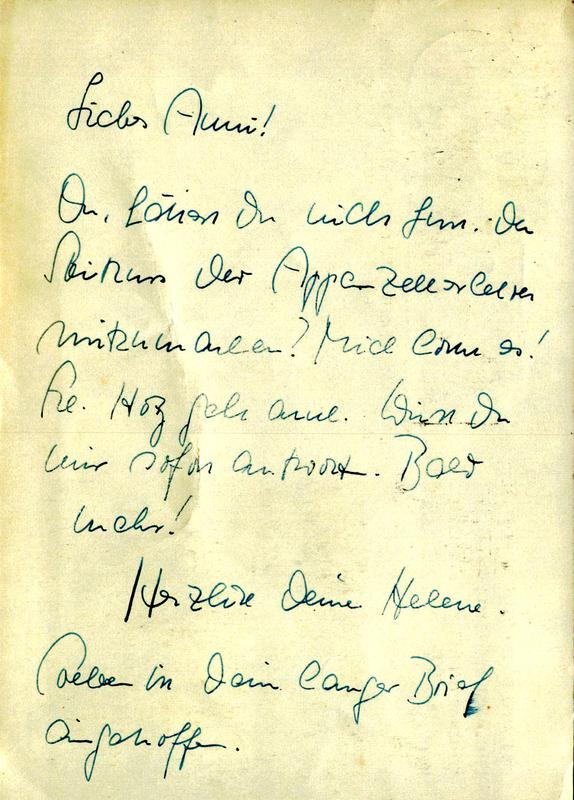 Liebes Anni!
Du, hättest Du nicht Lust, den
Skikurs der Appenzellerlehrer
mitzumachen? Mich lockt es!
Frl. Hotz geht auch. Willst Du
mir sofort antworten. Bald
mehr!
Herzlich Deine Helene.
Soeben ist Dein langer Brief
eingetroffen.